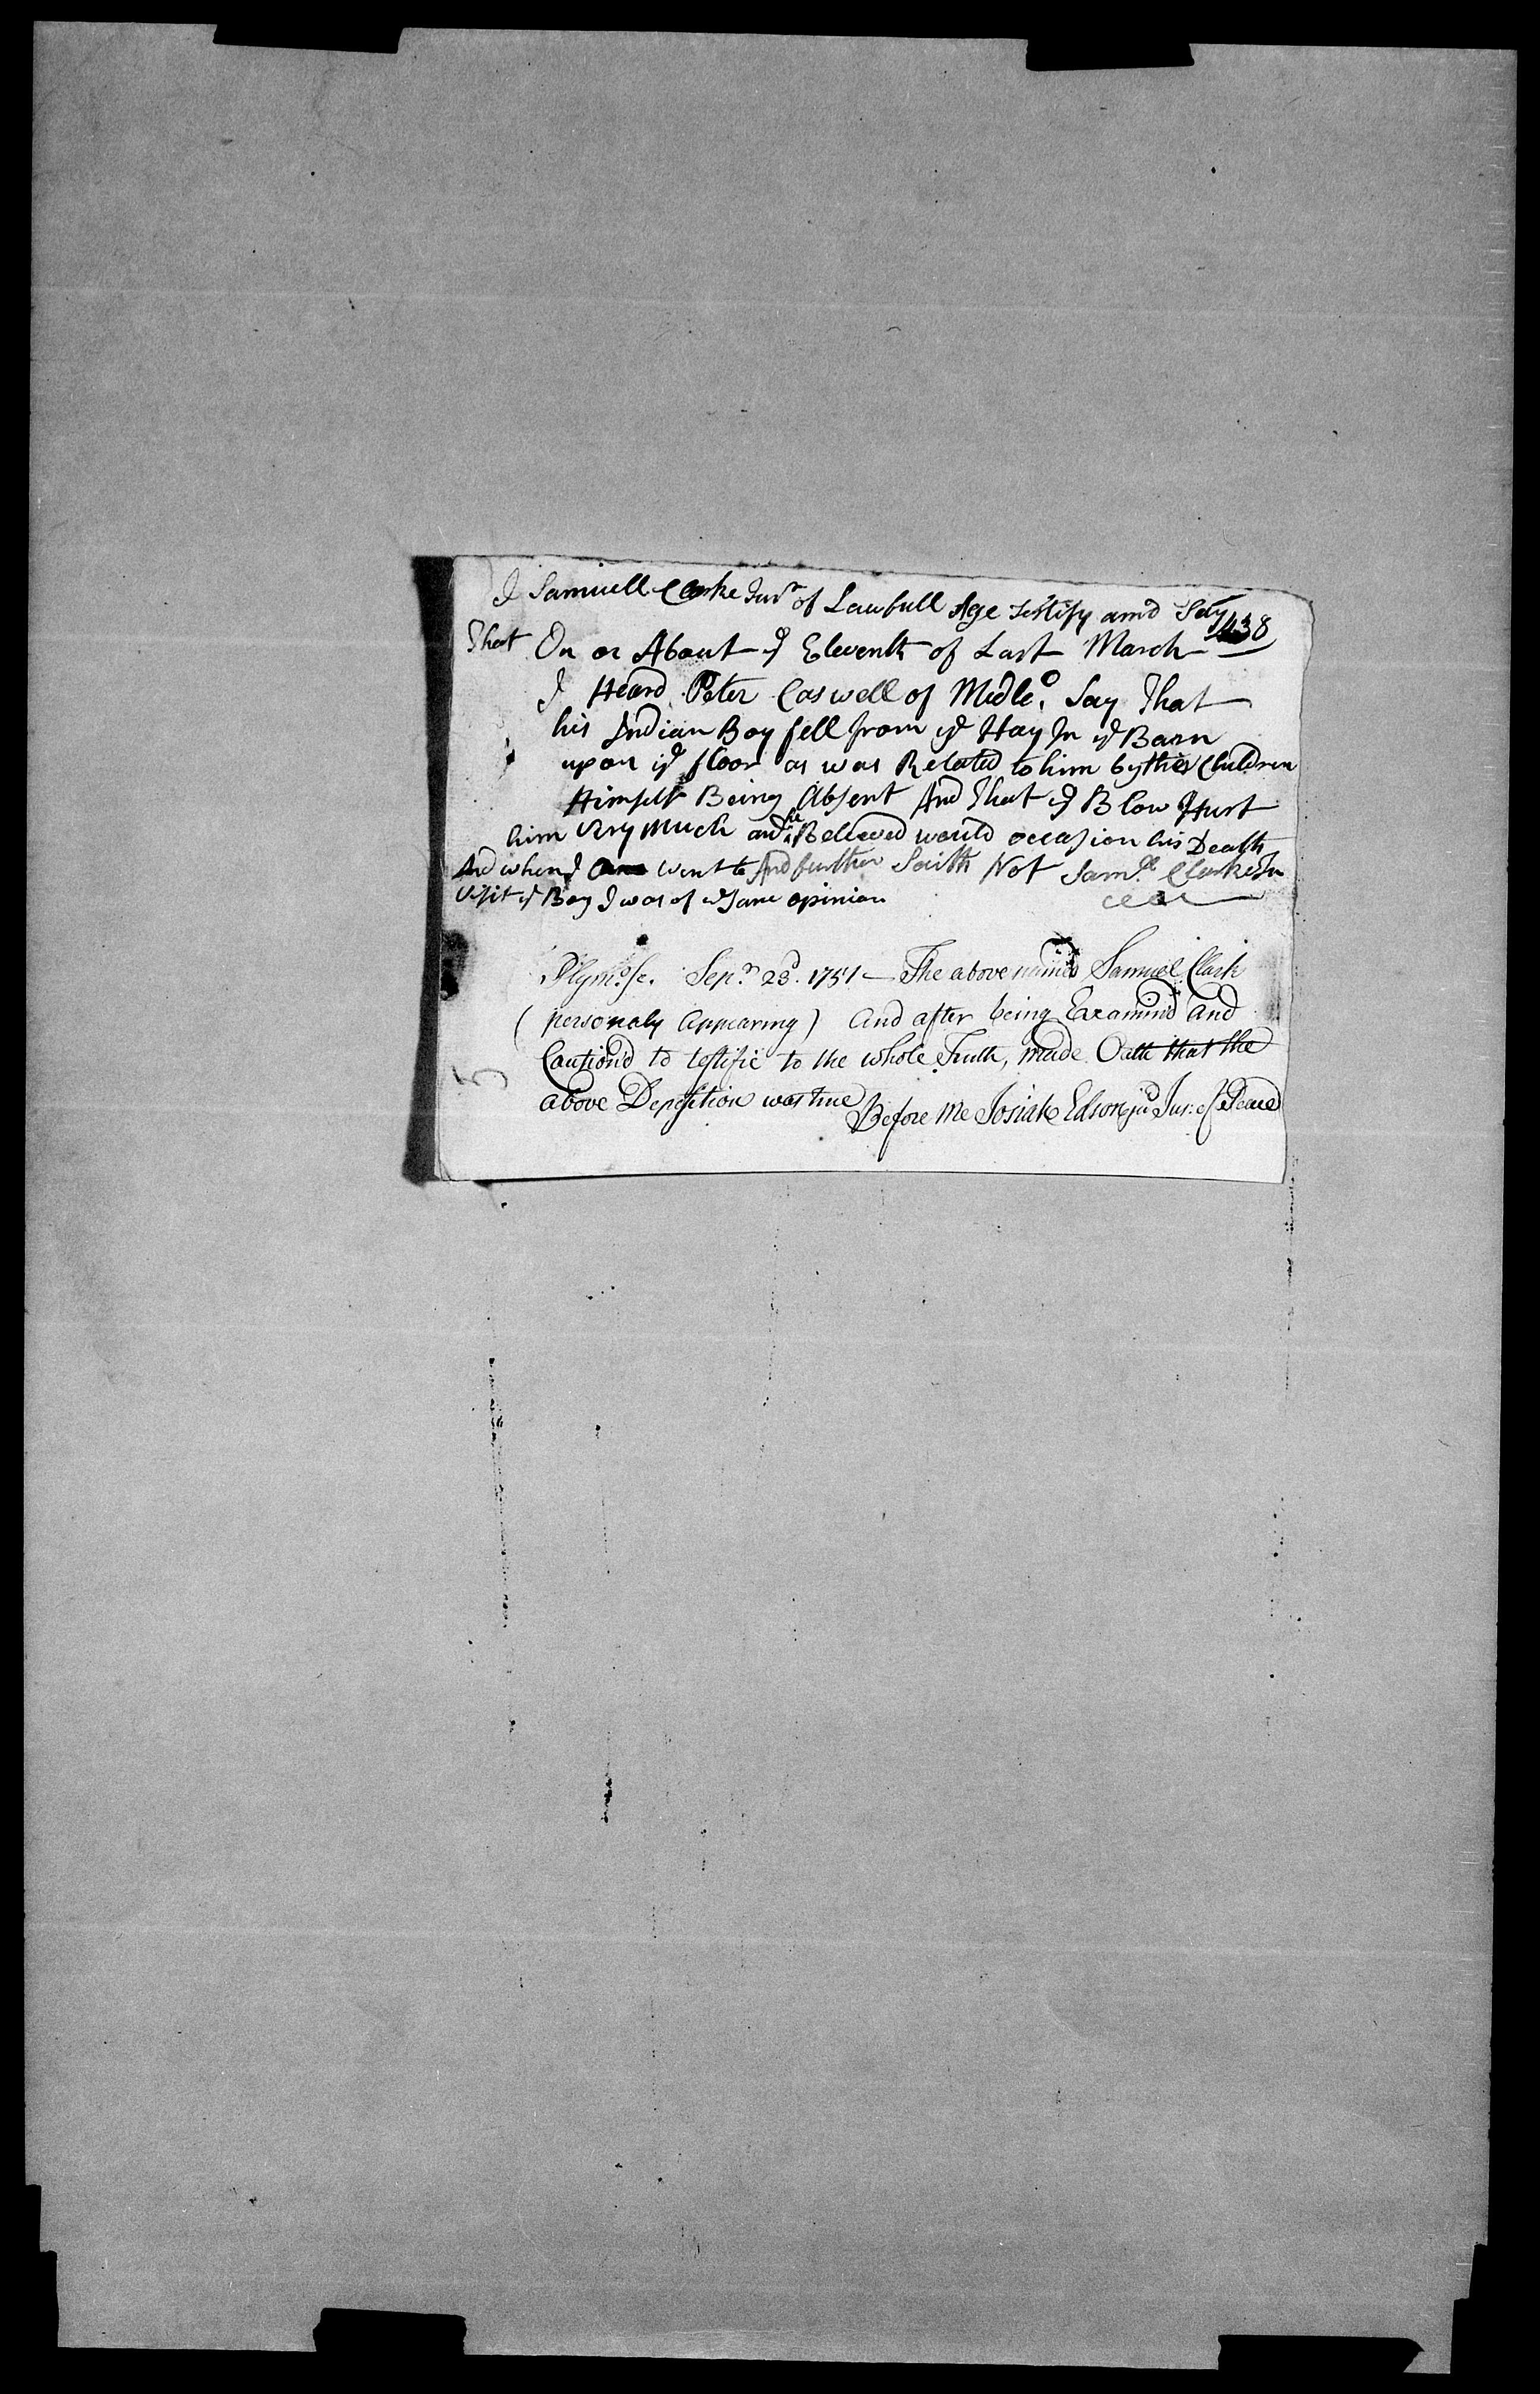 I Samuell Clarke Junr of Lawfull Age testify and Say
438
That On or About ye Eleventh of Last March
I Heard Peter Caswell of Midleo. Say That
his Indian Boy fell from ye Hay In ye Barn
upon ye floor as was Related to him by their Children
Himself Being Absent And That ye Blow Hurt
him Very much and he Beleeved would occasion his Death
And when I went to And further Saith Not Samll Clarke Jn
Visit ye Boy I was of ye Same opinion
Plymo. sc. Sepr. 23d. 1751 — The above named Samuel Clark
(personaly Appearing) and after being Examin'd and
Caution'd to testifie to the whole Truth, made Oath that the
above Deposition was true
Before me Josiah Edson jud Jus: of Peace
5